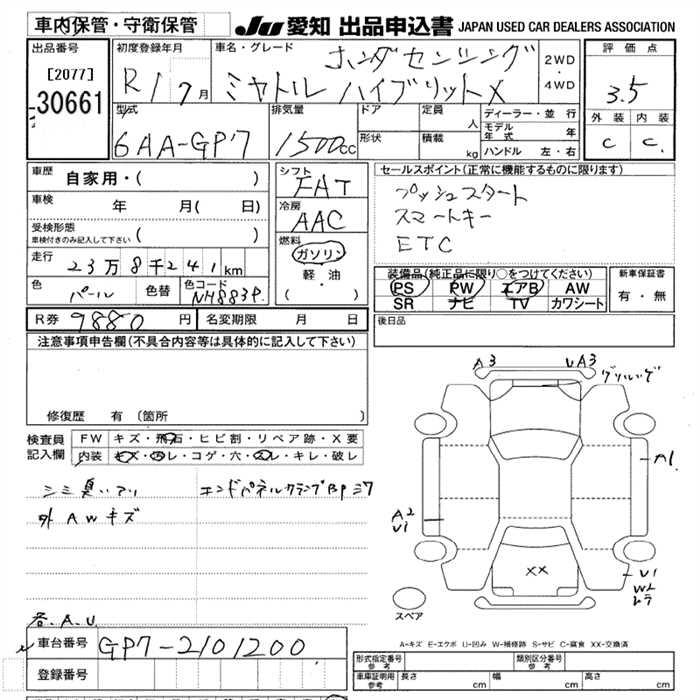 車内保管・守衛保管
JU 愛知 出品申込書 JAPAN USED CAR DEALERS ASSOCIATION
出品番号
[2077]
30661
初度登録年月
R1 7月
車名・グレード
ホンダセンシング
ミヤトル ハイブリットX
2WD
・
4WD
評価点
3.5
外装 内装
C C.
型式
6AA-GP7
排気量
1500cc
ドア
形状
定員
人
積載
kg
ディーラー・並行
モデル年式 年
ハンドル 左・右
車歴 自家用・( )
車検 年 月( 日)
受検形態
車検付きのみ記入して下さい ( )
走行 23万8千241km
色 パール 色替 色コード NH883P.
シフト
FAT
冷房
AAC
燃料
ガソリン
軽・油
( )
セールスポイント(正常に機能するものに限ります)
プッシュスタート
スマートキー
ETC
装備品(純正品に限り○をつけてください)
PS PW エアB AW
SR ナビ TV カワシート
新車保証書
有・無
R券 9880円 名変期限 月 日
後日品
注意事項申告欄(不具合内容等は具体的に記入して下さい)
修復歴 有 〔箇所 〕
検査員記入欄
FW キズ・飛石・ヒビ割・リペア跡・X要
内装 キズ・汚レ・コゲ・穴・スレ・キレ・破レ
シミ臭いアリ
エンドパネルクランプBP
外AWキズ
A3 UA3
A1
A2
U1
XX
U1
スペア
A-キズ E-エクボ U-凹み W-補修跡 S-サビ C-腐食 XX-交換済
車台番号 GP7-2101200
登録番号
形式指定番号 参考
類別区分番号 参考
車庫証明用 参考 長さ cm 幅 cm 高さ cm